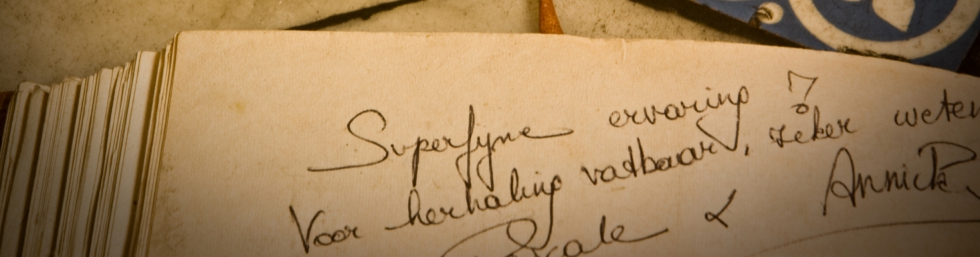 Superfyne ervaring ?
Voor herhaling vatbaar, zeker weten
& Annick